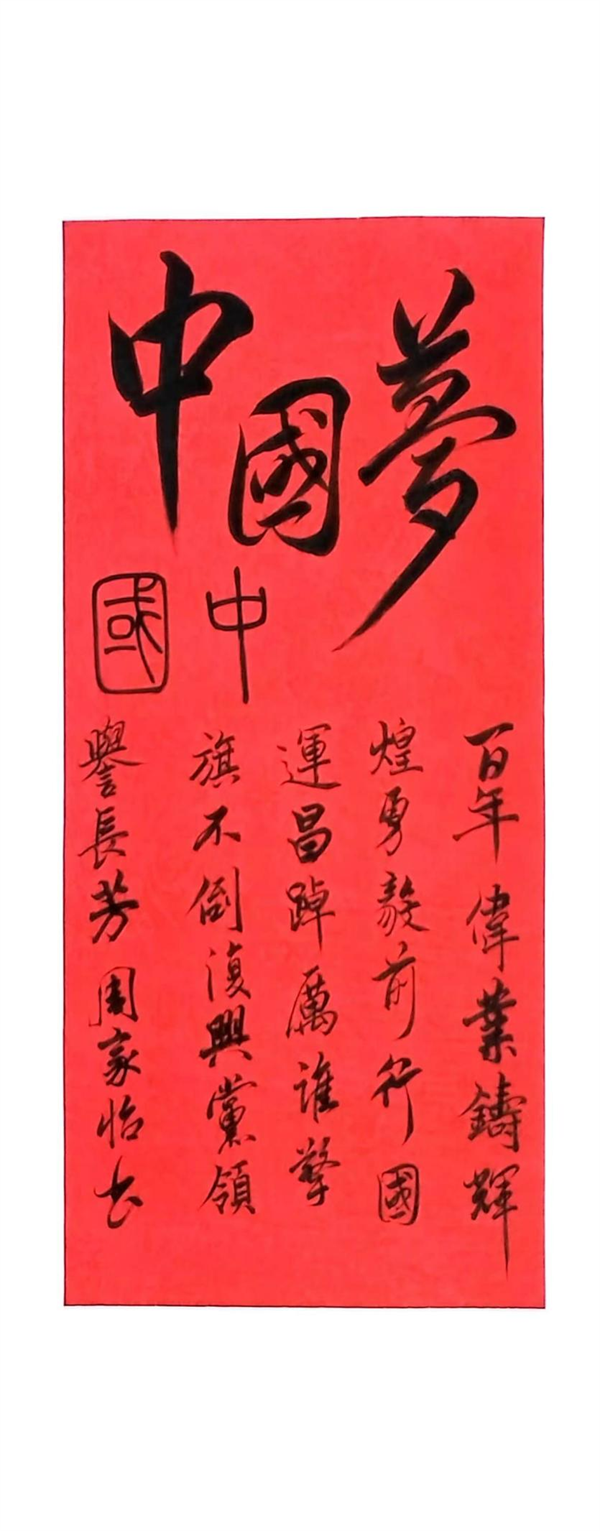 中國夢
中國
百年偉業鑄輝
煌勇毅前行國
運昌踔厲誰擎
旗不倒復興黨領
譽長芳 周家怡书